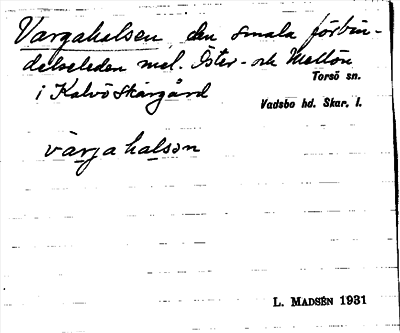 Vargahalsen, den smala förbin-
delseleden mel. Öster- och Mellön
Torsö sn.
i Kalvö Skärgård
Vadsbo hd. Skar. l.
varjahalsən
L. MADSÉN 1931